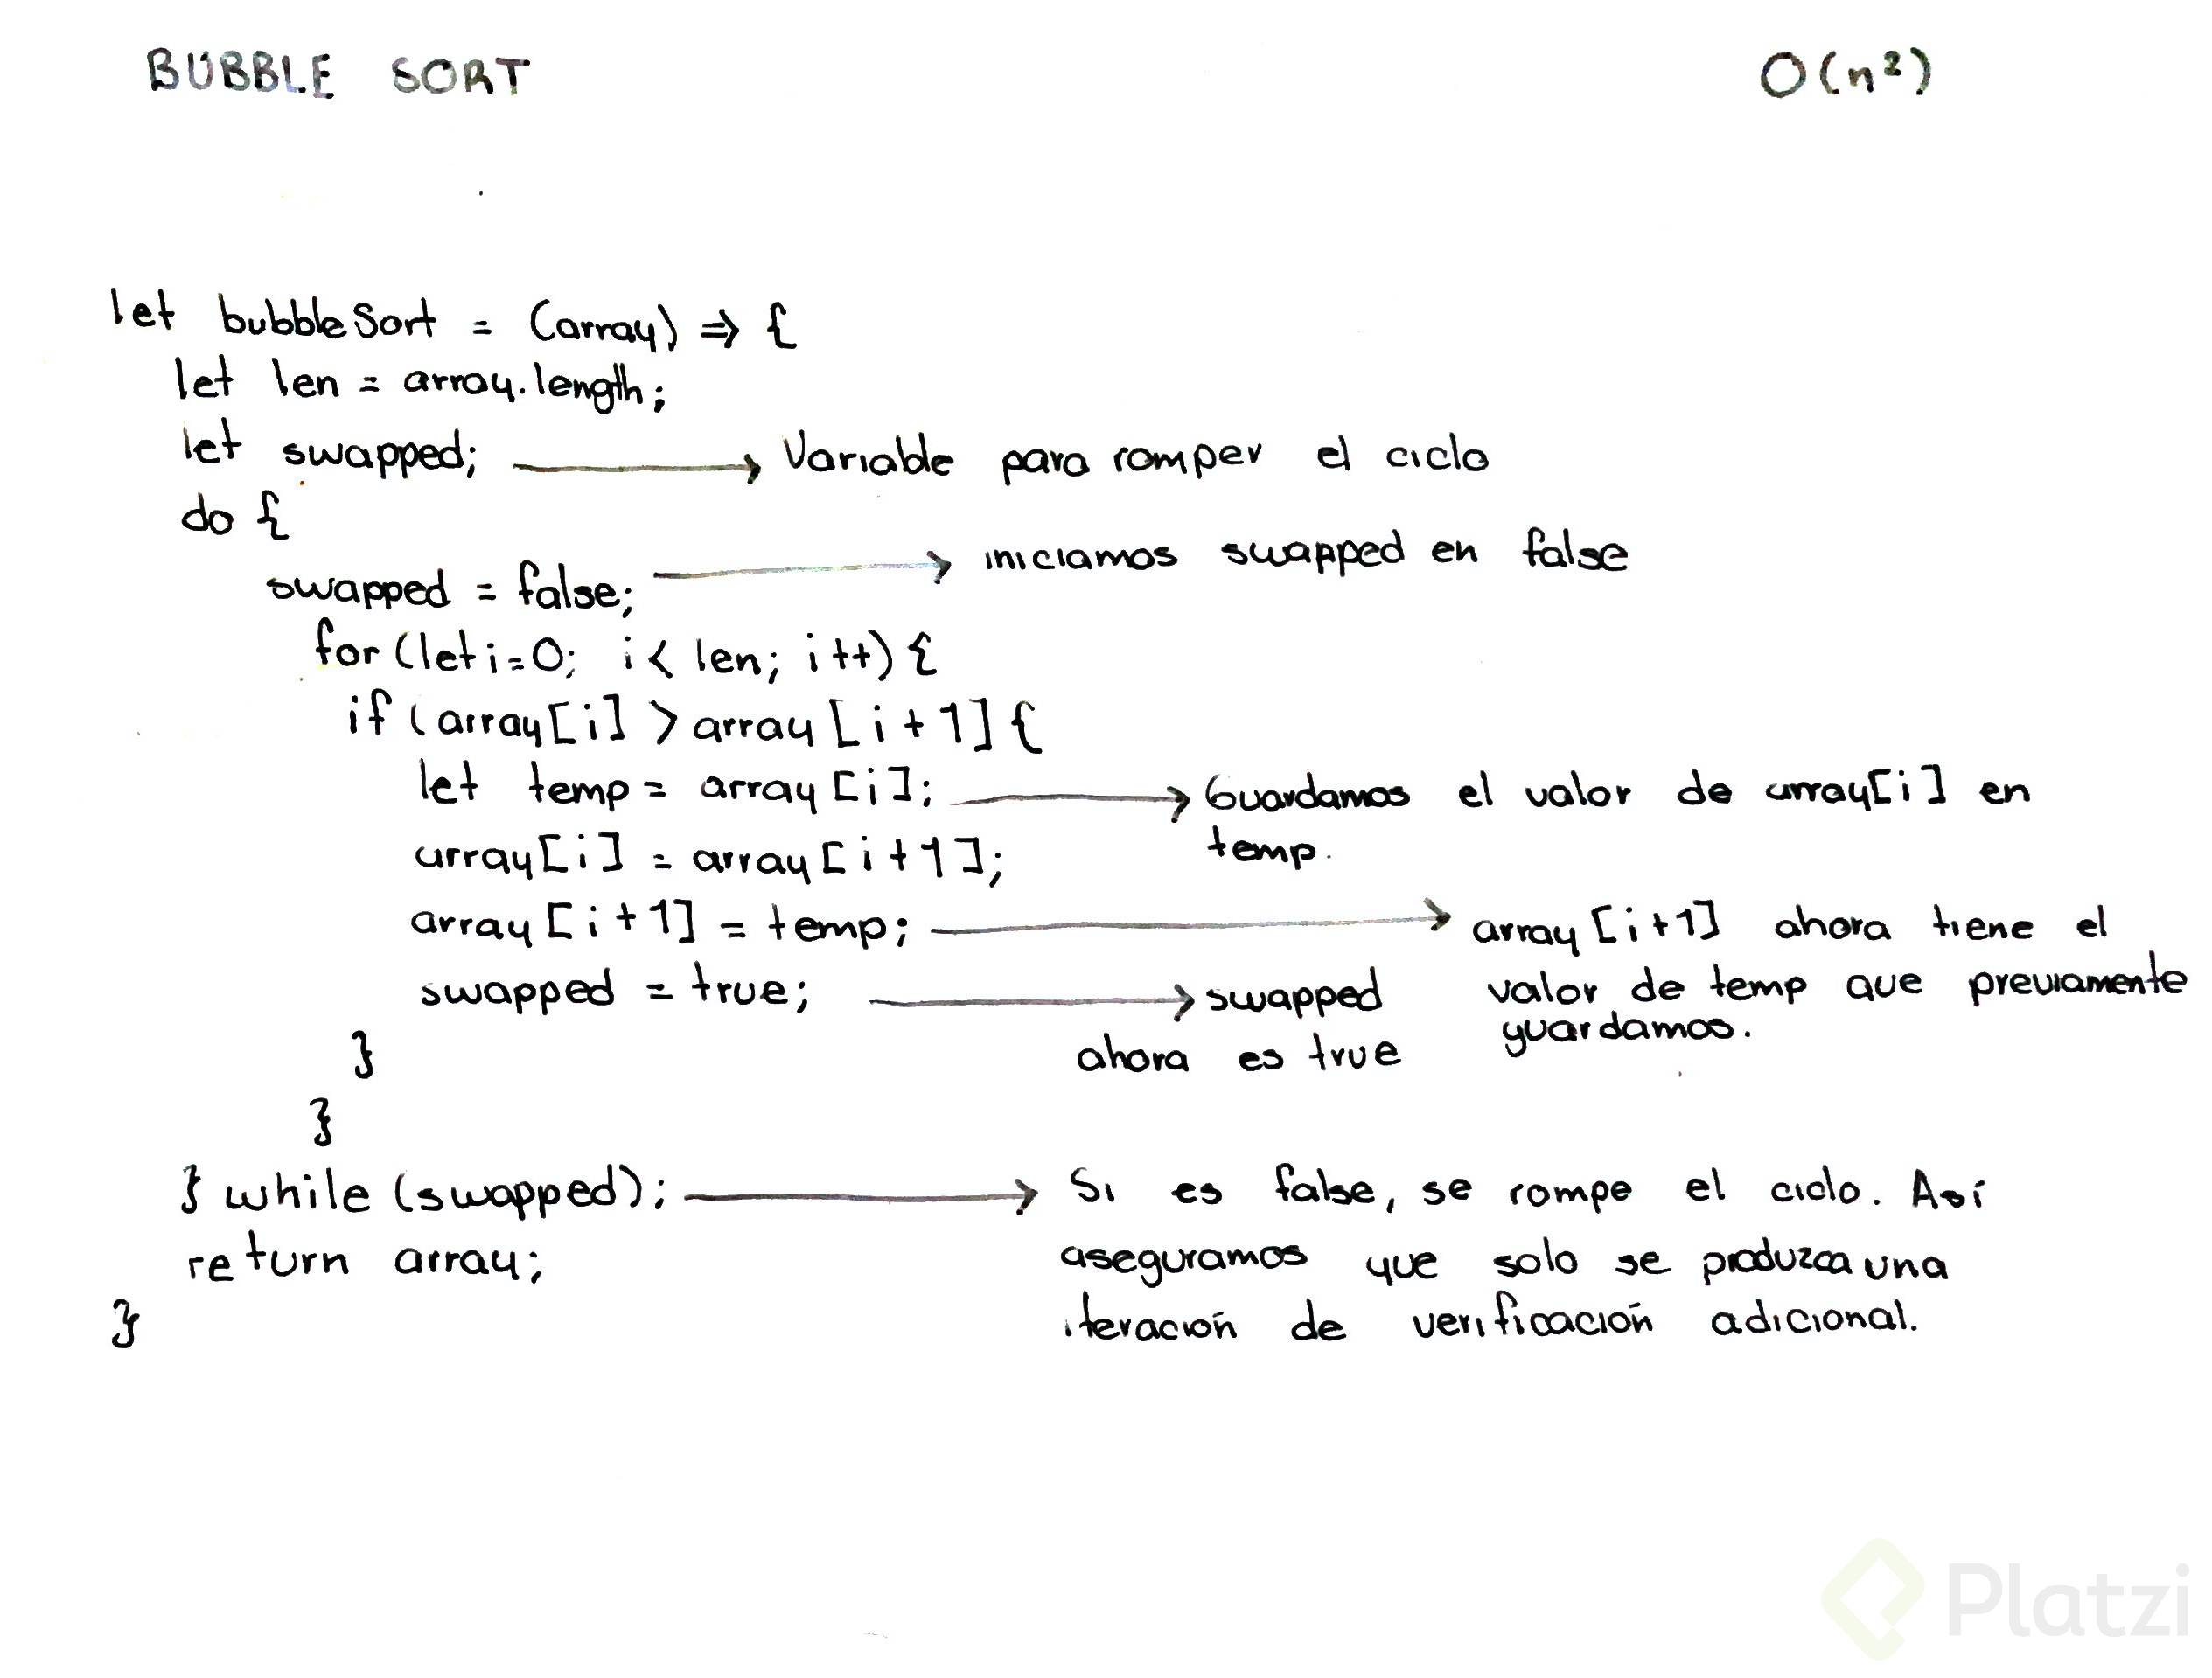 BUBBLE SORT O(n²)
let bubbleSort = (array) => {
let len = array.length;
let swapped; → Variable para romper el ciclo
do {
swapped = false; → iniciamos swapped en false
for (let i=0; i< len; i++) {
if (array[i] > array[i+1] {
let temp = array[i]; → Guardamos el valor de array[i] en
temp.
array[i] = array[i+1];
array[i+1] = temp; → array[i+1] ahora tiene el
valor de temp que previamente
guardamos.
swapped = true; → swapped
ahora es true
}
}
} while (swapped); → Si es false, se rompe el ciclo. Así
aseguramos que solo se produzca una
iteración de verificación adicional.
return array;
}
Platzi